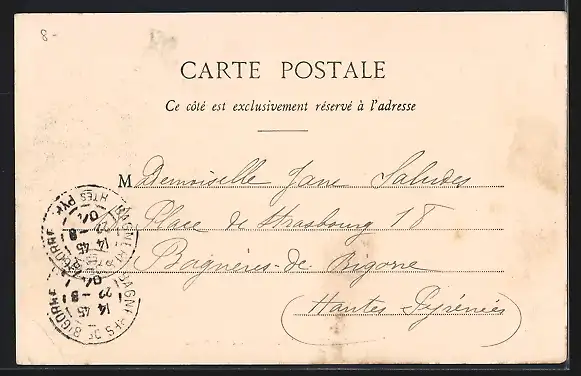 8-
CARTE POSTALE
Ce côté est exclusivement réservé à l'adresse
M Demoiselle Jane Saludes
Place de Strasbourg 18
Bagnères-de-Bigorre
(Hautes Pyrénées)
BAGNERES DE BIGORRE
HTES PYR
14 45
22 -8